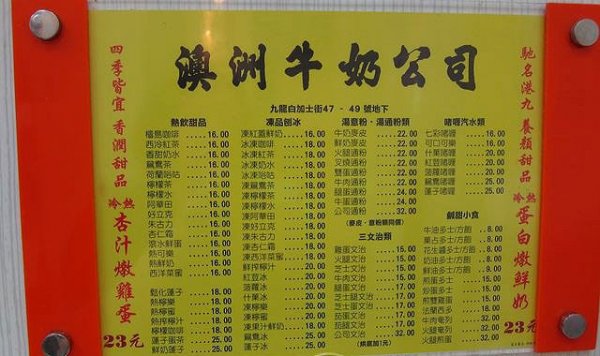 澳洲牛奶公司
九龍白加士街47 - 49號地下
四季皆宜 香潤甜品
冷熱 杏汁燉雞蛋
23元
熱飲甜品
西冷紅茶.....16.00
香甜奶水.....16.00
鴛鴦茶.....16.00
檸檬茶.....16.00
檸檬水.....16.00
阿華田.....16.00
好立克.....16.00
朱古力.....16.00
杏仁霜.....16.00
滾水鮮蛋.....16.00
熱可樂.....16.00
熱鮮奶.....16.00
西洋菜蜜.....16.00
熱檸樂.....18.00
熱檸蜜.....18.00
檸檬咖啡.....18.00
蓮子蛋茶.....25.00
鮮奶蓮子.....25.00
凍品刨冰
凍紅蓋鮮奶.....16.00
凍凍咖啡.....16.00
凍凍紅茶.....18.00
凍凍奶水.....18.00
凍鴛鴦茶.....18.00
凍檸檬茶.....18.00
凍檸檬水.....18.00
凍阿華田.....18.00
凍好立克.....18.00
凍朱古力.....18.00
凍杏仁霜.....18.00
凍西洋菜蜜.....18.00
鮮搾檸汁.....20.00
紅荳冰.....20.00
菠蘿冰.....20.00
什菓冰.....20.00
凍檸樂.....20.00
凍檸蜜.....20.00
凍果汁鮮奶.....18.00
鴛鴦冰.....25.00
蓮子冰.....25.00
湯意粉・湯通粉類
牛奶麥皮.....22.00
鮮奶麥皮.....22.00
火腿通粉.....22.00
叉燒通粉.....22.00
雙蛋通粉.....22.00
牛肉通粉.....22.00
腿蛋通粉.....24.00
牛蛋通粉.....24.00
公司通粉.....32.00
(麥皮・意粉類同價)
三文治類
雞蛋文治.....15.00
火腿文治.....15.00
芝士文治.....15.00
牛肉文治.....15.00
腿蛋文治.....17.00
牛蛋文治.....17.00
芝士腿文治.....17.00
芝士蛋文治.....17.00
茄蛋文治.....17.00
公司文治.....32.00
(烘底加1元)
啫喱汽水類
七彩啫喱.....16.00
可口可樂.....16.00
什菓啫喱.....20.00
紅荳啫喱.....20.00
菠蘿啫喱.....20.00
鴛鴦啫喱.....25.00
蓮子啫喱.....25.00
鹹甜小食
牛油多士/方飽.....8.00
菓占多士/方飽.....8.00
花生醬多士/方飽.....8.00
奶油多士/方飽.....8.00
鮮油多士/方飽.....9.00
煎蛋多士.....15.00
炒蛋多士.....15.00
煎雙雞蛋.....15.00
法蘭西多.....16.00
牛肉奄列.....32.00
火腿奄列.....32.00
火腿煎蛋.....32.00
馳名港九 養顏甜品
冷熱 蛋白燉鮮奶
23元